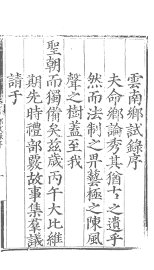 雲南鄉試錄序
夫命鄉論秀其猶古之遺乎
然而法制之畀藝極之陳風
聲之樹蓋至我
聖朝而獨備矣茲歲丙午大比維
期先時禮部覈故事集羣議
請于